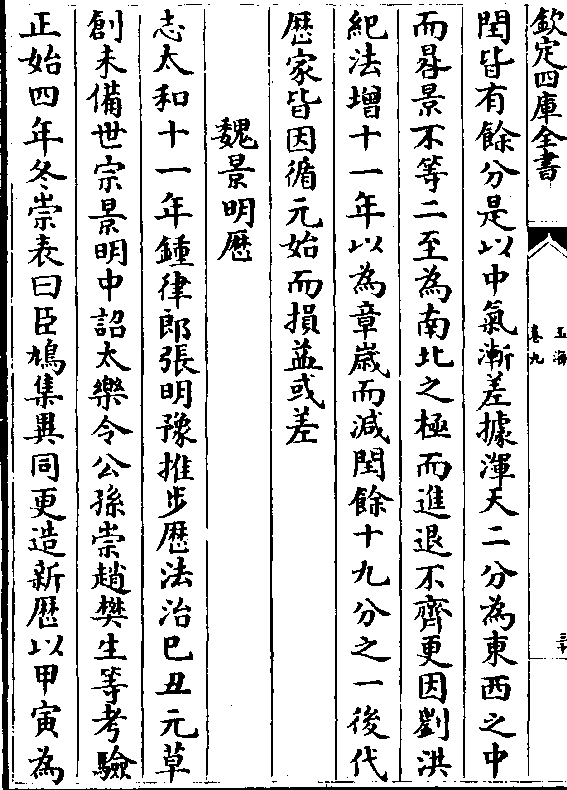 欽定四庫全書
玉海
卷九
閏皆有餘分是以中氣漸差據渾天二分為東西之中
而晷景不等二至為南北之極而進退不齊更因劉洪
紀法增十一年以為章嵗而減閏餘十九分之一後代
厯家皆因循元始而損益或差
魏景明厯
志太和十一年鍾律郎張明豫推步厯法治巳丑元草
創未備世宗景明中詔太樂令公孫崇趙樊生等考驗
正始四年冬崇表曰臣鳩集異同更造新厯以甲寅為